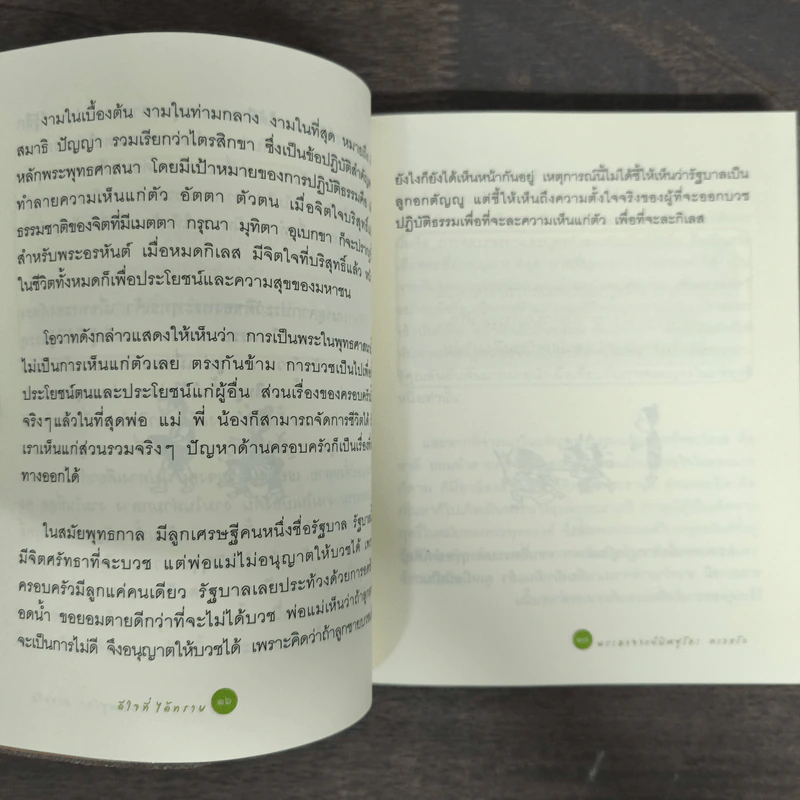 งามในเบื้องต้น งามในท่ามกลาง งามในที่สุด หมายถึง
สมาธิ ปัญญา รวมเรียกว่าไตรสิกขา ซึ่งเป็นข้อปฏิบัติสำคัญ
หลักพระพุทธศาสนา โดยมีเป้าหมายของการปฏิบัติธรรมคือ
ทำลายความเห็นแก่ตัว อัตตา ตัวตน เมื่อจิตใจบริสุทธิ์
ธรรมชาติของจิตที่มีเมตตา กรุณา มุทิตา อุเบกขา ก็จะปราก
สำหรับพระอรหันต์ เมื่อหมดกิเลส มีจิตใจที่บริสุทธิ์แล้ว
ในชีวิตทั้งหมดก็เพื่อประโยชน์และความสุขของมหาชน
โอวาทดังกล่าวแสดงให้เห็นว่า การเป็นพระในพุทธศาสนา
ไม่เป็นการเห็นแก่ตัวเลย ตรงกันข้าม การบวชเป็นไปเพื่อ
ประโยชน์ตนและประโยชน์แก่ผู้อื่น ส่วนเรื่องของครอบครัว
จริงๆแล้วในที่สุดพ่อ แม่ พี่ น้องก็สามารถจัดการชีวิตได้
เราเห็นแก่ส่วนรวมจริงๆ ปัญหาด้านครอบครัวก็เป็นเรื่อง
ทางออกได้
ในสมัยพุทธกาล มีลูกเศรษฐีคนหนึ่งชื่อรัฐบาล รัฐบาล
มีจิตศรัทธาที่จะบวช แต่พ่อแม่ไม่อนุญาตให้บวชได้ เพ
ครอบครัวมีลูกแค่คนเดียว รัฐบาลเลยประท้วงด้วยการอด
อดน้ำ ขอยอมตายดีกว่าที่จะไม่ได้บวช พ่อแม่เห็นว่าถ้าลูก
จะเป็นการไม่ดี จึงอนุญาตให้บวชได้ เพราะคิดว่าถ้าลูกชายบวช
ดีใจที่ได้ทราบ ๑๖
ยังไงก็ยังได้เห็นหน้ากันอยู่ เหตุการณ์นี้ไม่ได้ชี้ให้เห็นว่ารัฐบาลเป็น
ลูกอกตัญญู แต่ชี้ให้เห็นถึงความตั้งใจจริงของผู้ที่จะออกบวช
ปฏิบัติธรรมเพื่อที่จะละความเห็นแก่ตัว เพื่อที่จะละกิเลส